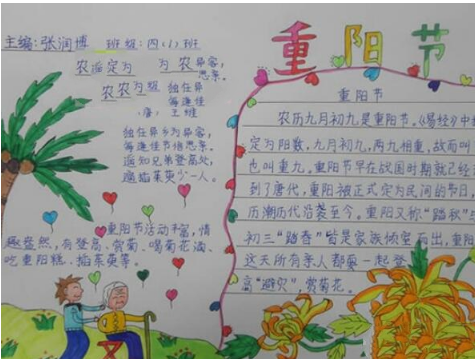 主编:张润博 班级:四(1)班
重阳节
独在异
每逢佳
(唐) 王维
独在异乡为异客,
每逢佳节倍思亲。
遥知兄弟登高处,
遍插茱萸少一人。
重阳节活动丰富,情
趣盎然,有登高、赏菊、喝菊花酒、
吃重阳糕、插茱萸等。
重阳节
农历九月初九是重阳节。《易经》中
定为阳数,九月初九,两九相重,故而叫
也叫重九。重阳节早在战国时期就已经
到了唐代,重阳被正式定为民间的节日
历潮历代沿袭至今。重阳又称"踏秋"
初三"踏春"皆是家族倾室而出,重阳
这天所有亲人都要一起登
高"避灾" 赏菊花。